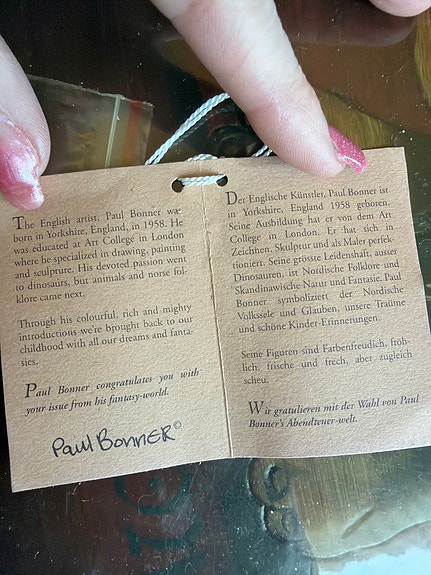 The English artist, Paul Bonner was
born in Yorkshire, England, in 1958. He
was educated at Art College in London
where he specialized in drawing, painting
and sculpture. His devoted passion went
to dinosaurs, but animals and norse fol-
klore came next.
Through his colourful, rich and mighty
introductions we're brought back to our
childhood with all our dreams and fanta-
sies.
Paul Bonner congratulates you with
your issue from his fantasy-world.
Paul BONNER©
Der Englische Künstler, Paul Bonner ist
in Yorkshire, England 1958 geboren.
Seine Ausbildung hat er von dem Art
College in London. Er hat sich in
Zeichnen, Skulptur und als Maler perfek-
tioniert. Seine grösste Leidenshaft, ausser
Dinosauren, ist Nordische Folklore und
Skandinawische Natur und Fantasie. Paul
Bonner symboliziert der Nordische
Volkssele und Glauben, unsere Traüme
und schöne Kinder-Erinnerungen.
Seine Figuren sind Farbenfreudich, fröh-
lich, frische und frech, aber zugleich
scheu.
Wir gratulieren mit der Wahl von Paul
Bonner's Abendteuer-welt.